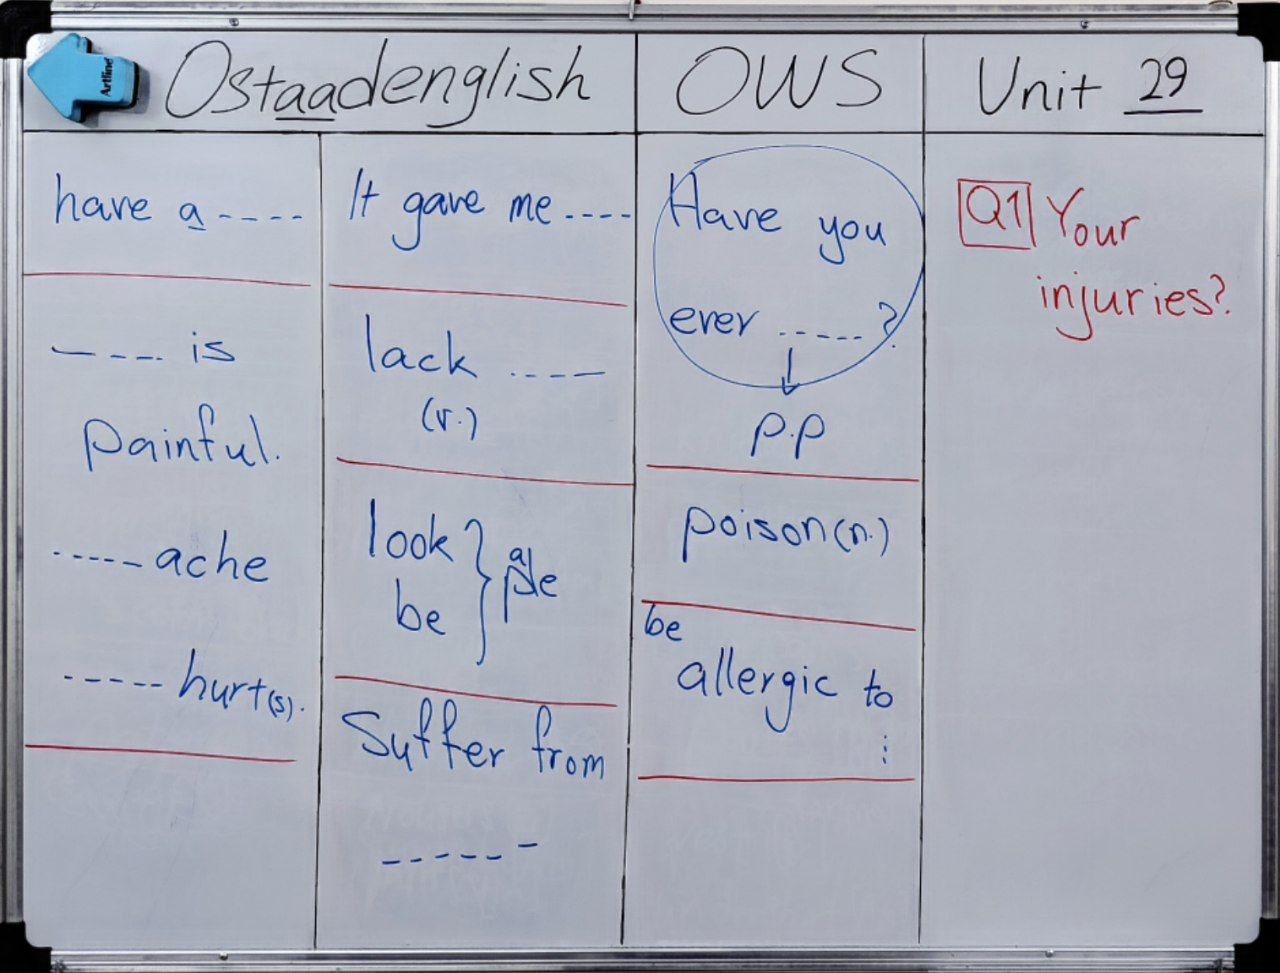 Ostaadenglish
OWS
Unit 29
have a ----
---- is
painful.
----- ache
----- hurt(s).
It gave me ----
lack ----
(v.)
look
be
} pale
Suffer from
------
Have you
ever -----?
p.p
poison(n.)
be
allergic to
⋮
Q1 Your
injuries?
Artline